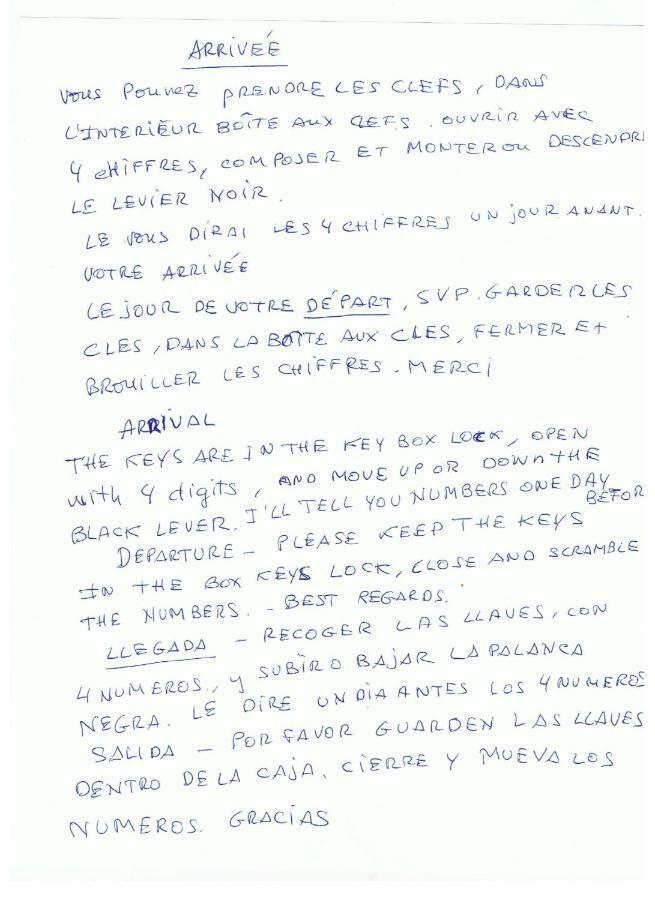 ARRIVEÉ
Vous Pouvez PRENDRE LES CLEFS, DANS
L'INTERIEUR BOÎTE AUX CLEFS. OUVRIR AVEC
4 CHIFFRES, COMPOSER ET MONTER OU DESCENDRE
LE LEVIER NOIR.
LE VOUS DIRAI LES 4 CHIFFRES UN JOUR AVANT.
VOTRE ARRIVÉE
LE JOUR DE VOTRE DÉPART, SVP. GARDER LES
CLES, DANS LA BOÎTE AUX CLES, FERMER ET
BROUILLER LES CHIFFRES. MERCI
ARRIVAL
THE KEYS ARE IN THE KEY BOX LOCK, OPEN
with 4 digits, AND MOVE UP OR DOWN THE
BLACK LEVER. I'LL TELL YOU NUMBERS ONE DAY
BEFOR
DEPARTURE - PLEASE KEEP THE KEYS
IN THE BOX KEYS LOCK, CLOSE AND SCRAMBLE
THE NUMBERS. - BEST REGARDS.
LLEGADA - RECOGER LAS LLAVES, CON
4 NUMEROS., Y SUBIR O BAJAR LA PALANCA
NEGRA. LE DIRE UN DIA ANTES LOS 4 NUMEROS
SALIDA - POR FAVOR GUARDEN LAS LLAVES
DENTRO DE LA CAJA. CIERRE Y MUEVA LOS
NUMEROS. GRACIAS